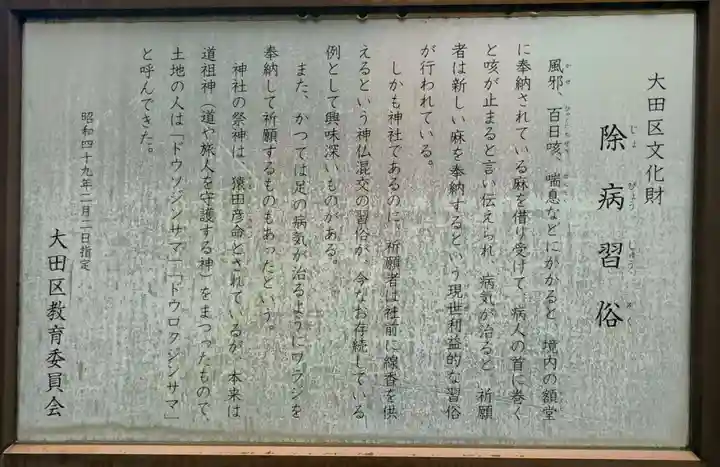 大田区文化財
除病習俗
じょびょうしゅうぞく
風邪、百日咳、喘息などにかかると、境内の額堂
に奉納されている麻を借り受けて、病人の首に巻く
と咳が止まると言い伝えられ、病気が治ると、祈願
者は新しい麻を奉納するという現世利益的な習俗
が行われている。
しかも神社であるのに、祈願者は社前に線香を供
えるという神仏混交の習俗が、今なお存続している
例として興味深いものがある。
また、かつては足の病気が治るようにワラジを
奉納して祈願するものもあったという。
神社の祭神は、猿田彦命とされているが、本来は
道祖神（道や旅人を守護する神）をまつったもので、
土地の人は「ドウソジンサマ」「ドウロクジンサマ」
と呼んできた。
昭和四十九年二月二日指定
大田区教育委員会